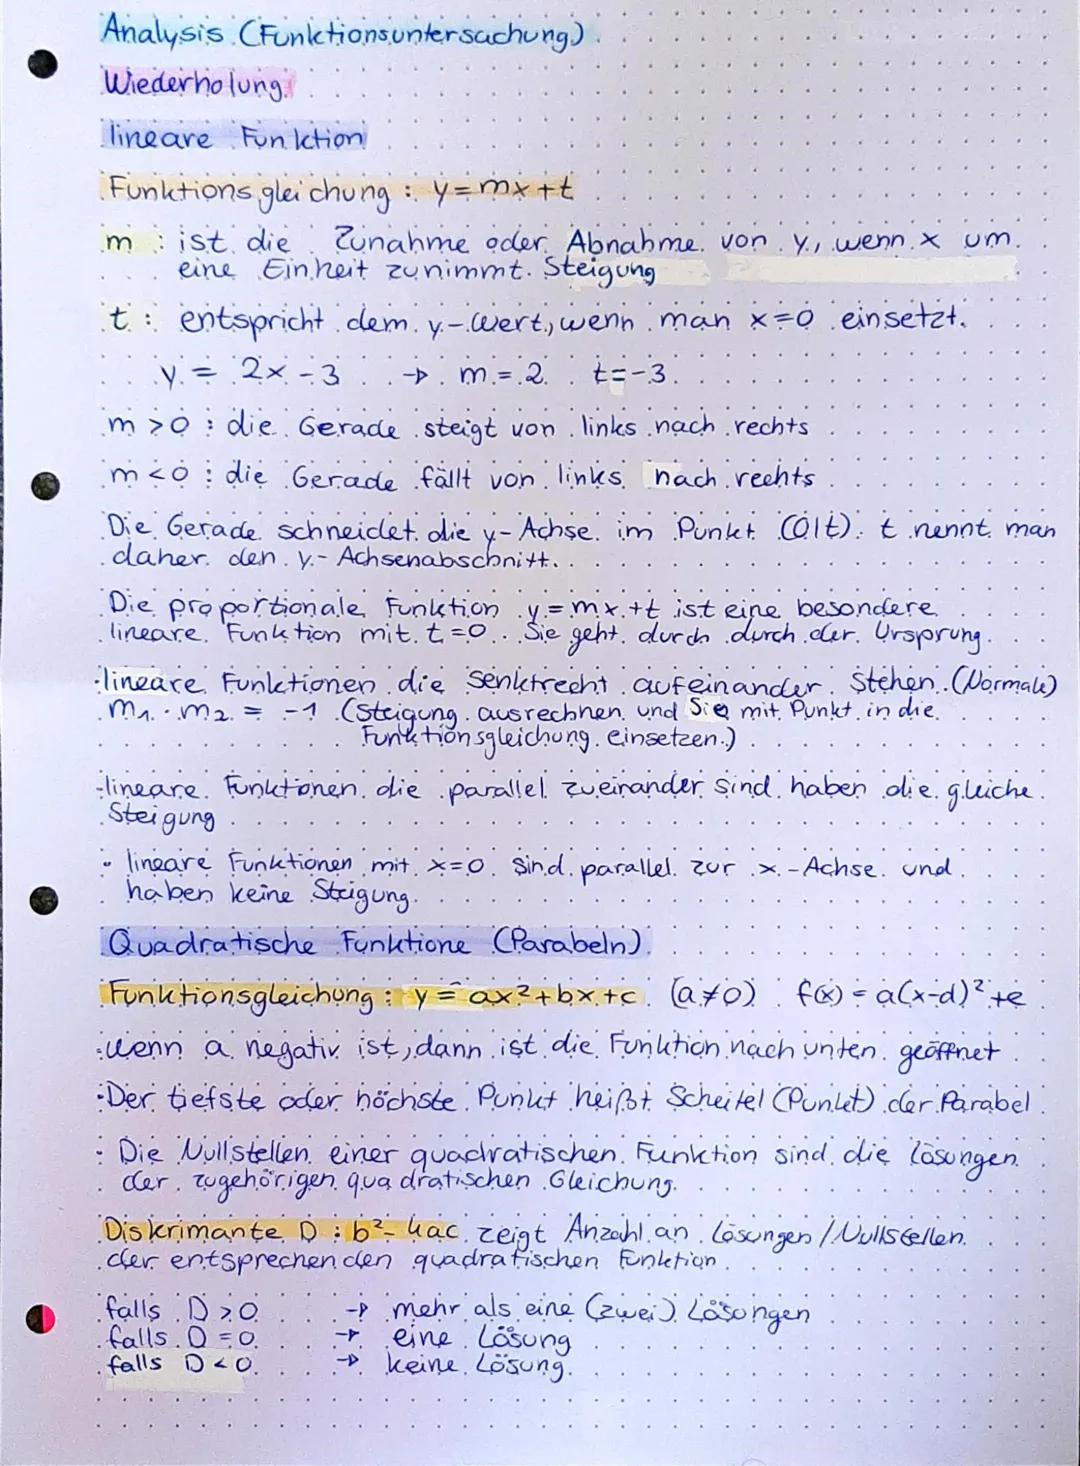 Analysis (Funktionsuntersuchung)
Wiederholung
lineare Funktion
Funktionsgleichung : y = mx + t
m : ist die Zunahme oder Abnahme von y, wenn x um
eine Einheit zunimmt. Steigung
t : entspricht dem y-Wert, wenn man x=0 einsetzt.
y = 2x - 3 → m = 2 t = -3
m > 0 : die Gerade steigt von links nach rechts
m < 0 : die Gerade fällt von links nach rechts
Die Gerade schneidet die y-Achse im Punkt (0|t). t nennt man
daher den y-Achsenabschnitt.
Die proportionale Funktion y = mx + t ist eine besondere
lineare Funktion mit t = 0. Sie geht durch durch der Ursprung.
·lineare Funktionen die senktrecht aufeinander stehen (Normale)
m₁ · m₂ = -1 (Steigung ausrechnen und Sie mit Punkt in die
Funktionsgleichung einsetzen.)
-lineare Funktionen die parallel zueinander sind haben die gleiche
Steigung
· lineare Funktionen mit x=0 sind parallel zur x-Achse und
haben keine Steigung.
Quadratische Funktione (Parabeln)
Funktionsgleichung : y = ax² + bx + c (a≠0) f(x) = a(x-d)² + e
·Wenn a negativ ist, dann ist die Funktion nach unten geöffnet
·Der tiefste oder höchste Punkt heißt Scheitel (Punkt) der Parabel
· Die Nullstellen einer quadratischen Funktion sind die Lösungen
der zugehörigen quadratischen Gleichung.
Diskrimante D : b² - 4ac zeigt Anzahl an Lösungen / Nullstellen
der entsprechenden quadratischen Funktion
falls D > 0 → mehr als eine (zwei) Lösungen
falls D = 0 → eine Lösung
falls D < 0 → keine Lösung.